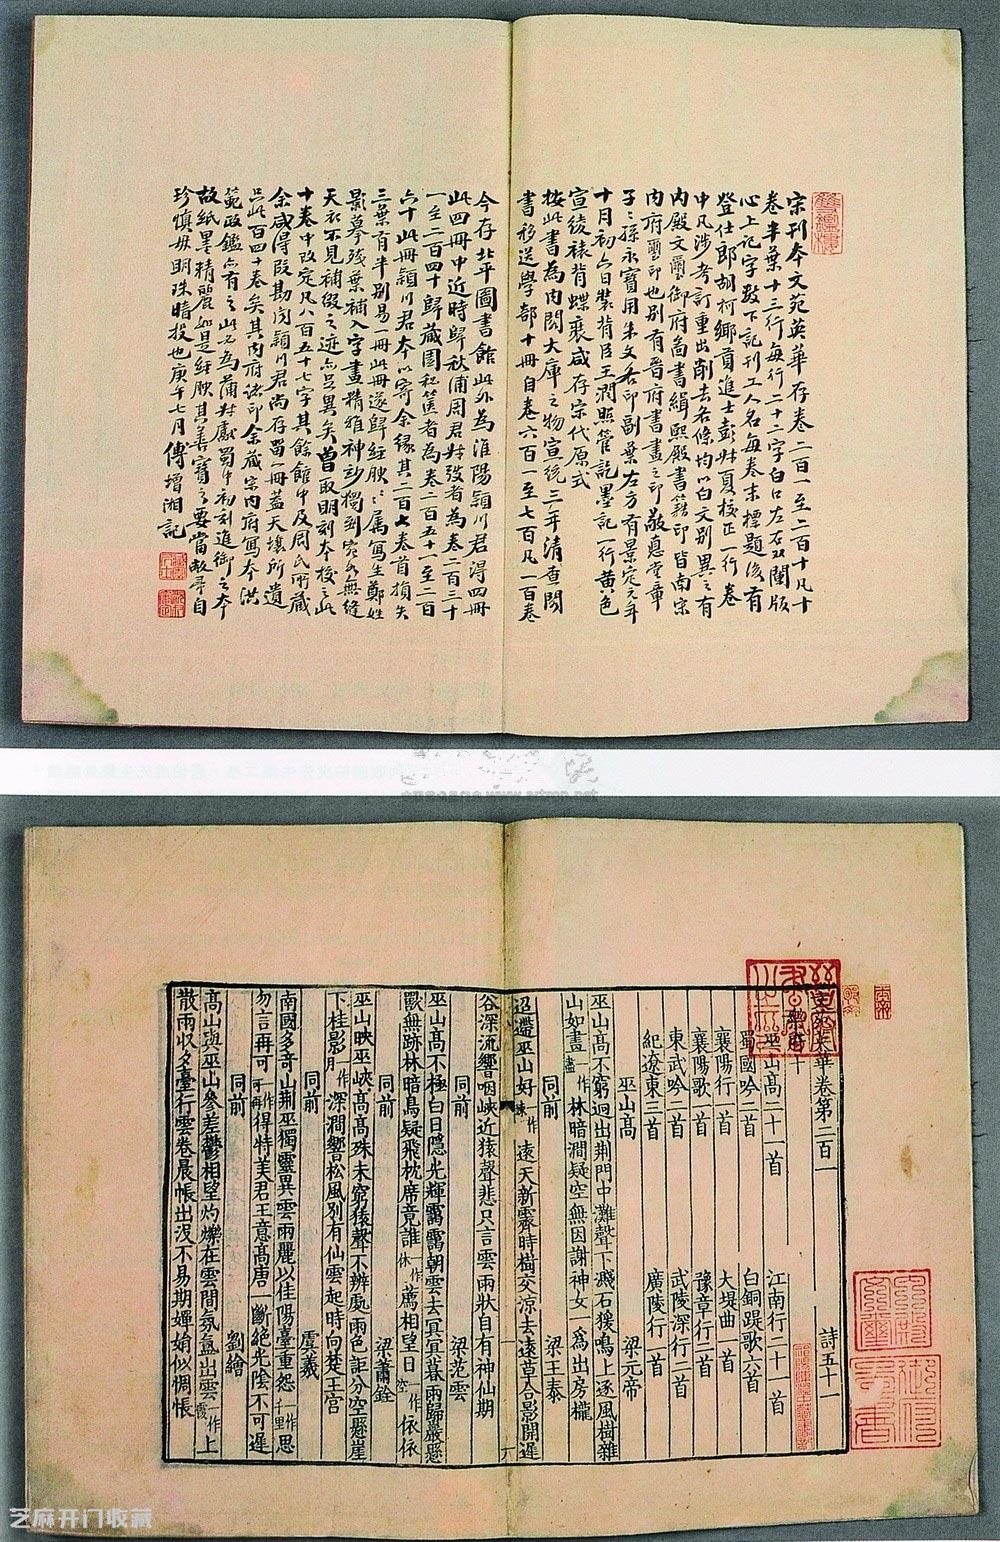 宗刊本文苑英華存卷二百一至二百十凡十
卷半葉十三行每行二十二字白口左右双闌版
心上記字數下記刊工人名每卷末標題後有
登仕郎胡柯鄉貢進士彭叔夏校正一行卷
中凡涉考訂重出削去各條均以白文別異之有
内殿文璽御府畜書緝熙殿書籍印皆南宗
内府璽印也別有晋府書畫之印敬悳堂章
子〻孫永寳用朱文各印副葉左方有景定元年
十月初六日裝背臣王潤照管訖墨記一行黄色
宣綾裱背蝶裝咸存宗代原式
按此書為内閣大庫之物宣統三年清查閣
書移送學部十冊自卷六百一至七百凡一百卷
今存北平圖書館此外為淮陽潁川君得四冊
此四冊中近時歸秋浦周君叔弢者為卷二百三十
一至二百四十歸藏園秘篋者為卷二百五十至二百
六十此冊潁川君本以寄余緣其二百七卷首損失
三葉有半別易一冊此冊遂歸經腴〻属寫生鄭姓
影摹殘葉補入字畫精雅神妙獨到宛如無縫
天衣不見補綴之迹亦呈異矣曽取明刻本校之此
十卷中改定凡八百五十七字其餘館中及周氏所藏
余咸得叚勘閟潁川君尚存蜀一冊蓋天壤所遺
只此百四十卷矣其内府諸印余藏宗内府寫本洪
範政鑑亦有之此必為蒲叔獻蜀中初刻進御之本
故紙墨精麗如是經腴其善寳之要當敝帚自
珍慎毋明珠暗投也庚午七月傅增湘記
雙鑑樓
文苑英華卷第二百一　詩五十一
樂府十
巫山高二十一首　江南行二十一首
蜀國吟二首　白銅鍉歌六首
襄陽行一首　大堤曲一首
襄陽歌一首　豫章行二首
東武吟二首　武陵深行二首
紀遼東三首　廣陵行一首
巫山高　梁元帝
巫山高不窮迥出荆門中灘聲下濺石猨鳴上逐風樹雜
山如畫一作盡林暗澗疑空無因謝神女一為出房櫳
同前　梁王泰
迢遰巫山竚一作遠天新霽時樹交涼去遠草合影開遲
谷深流響咽峽近猿聲悲只言雲雨狀自有神仙期
同前　梁范雲
巫山高不極白日隱光輝靄靄朝雲去冥冥暮雨歸巖懸
獸無跡林暗鳥疑飛枕席竟誰一作休薦相望日一作空依依
同前　梁蕭銓
巫山映巫峽高高殊未窮猿聲不辨處雨色詎分空懸崖
下桂影一作月深澗響松風別有仙雲起時向楚王宫
同前　虞羲
南國多奇山荆巫獨靈異雲雨麗以佳陽臺重怨一作千里思
勿言再可一作不再得特美君王意高唐一斷絶光陰不可遲
同前　劉繪
高山與巫山參差鬱相望灼爍在雲間氛氲出雲一作霞上
散雨收夕臺行雲卷晨帳出没不易期嬋娟似惆悵
六
芝麻开门收藏